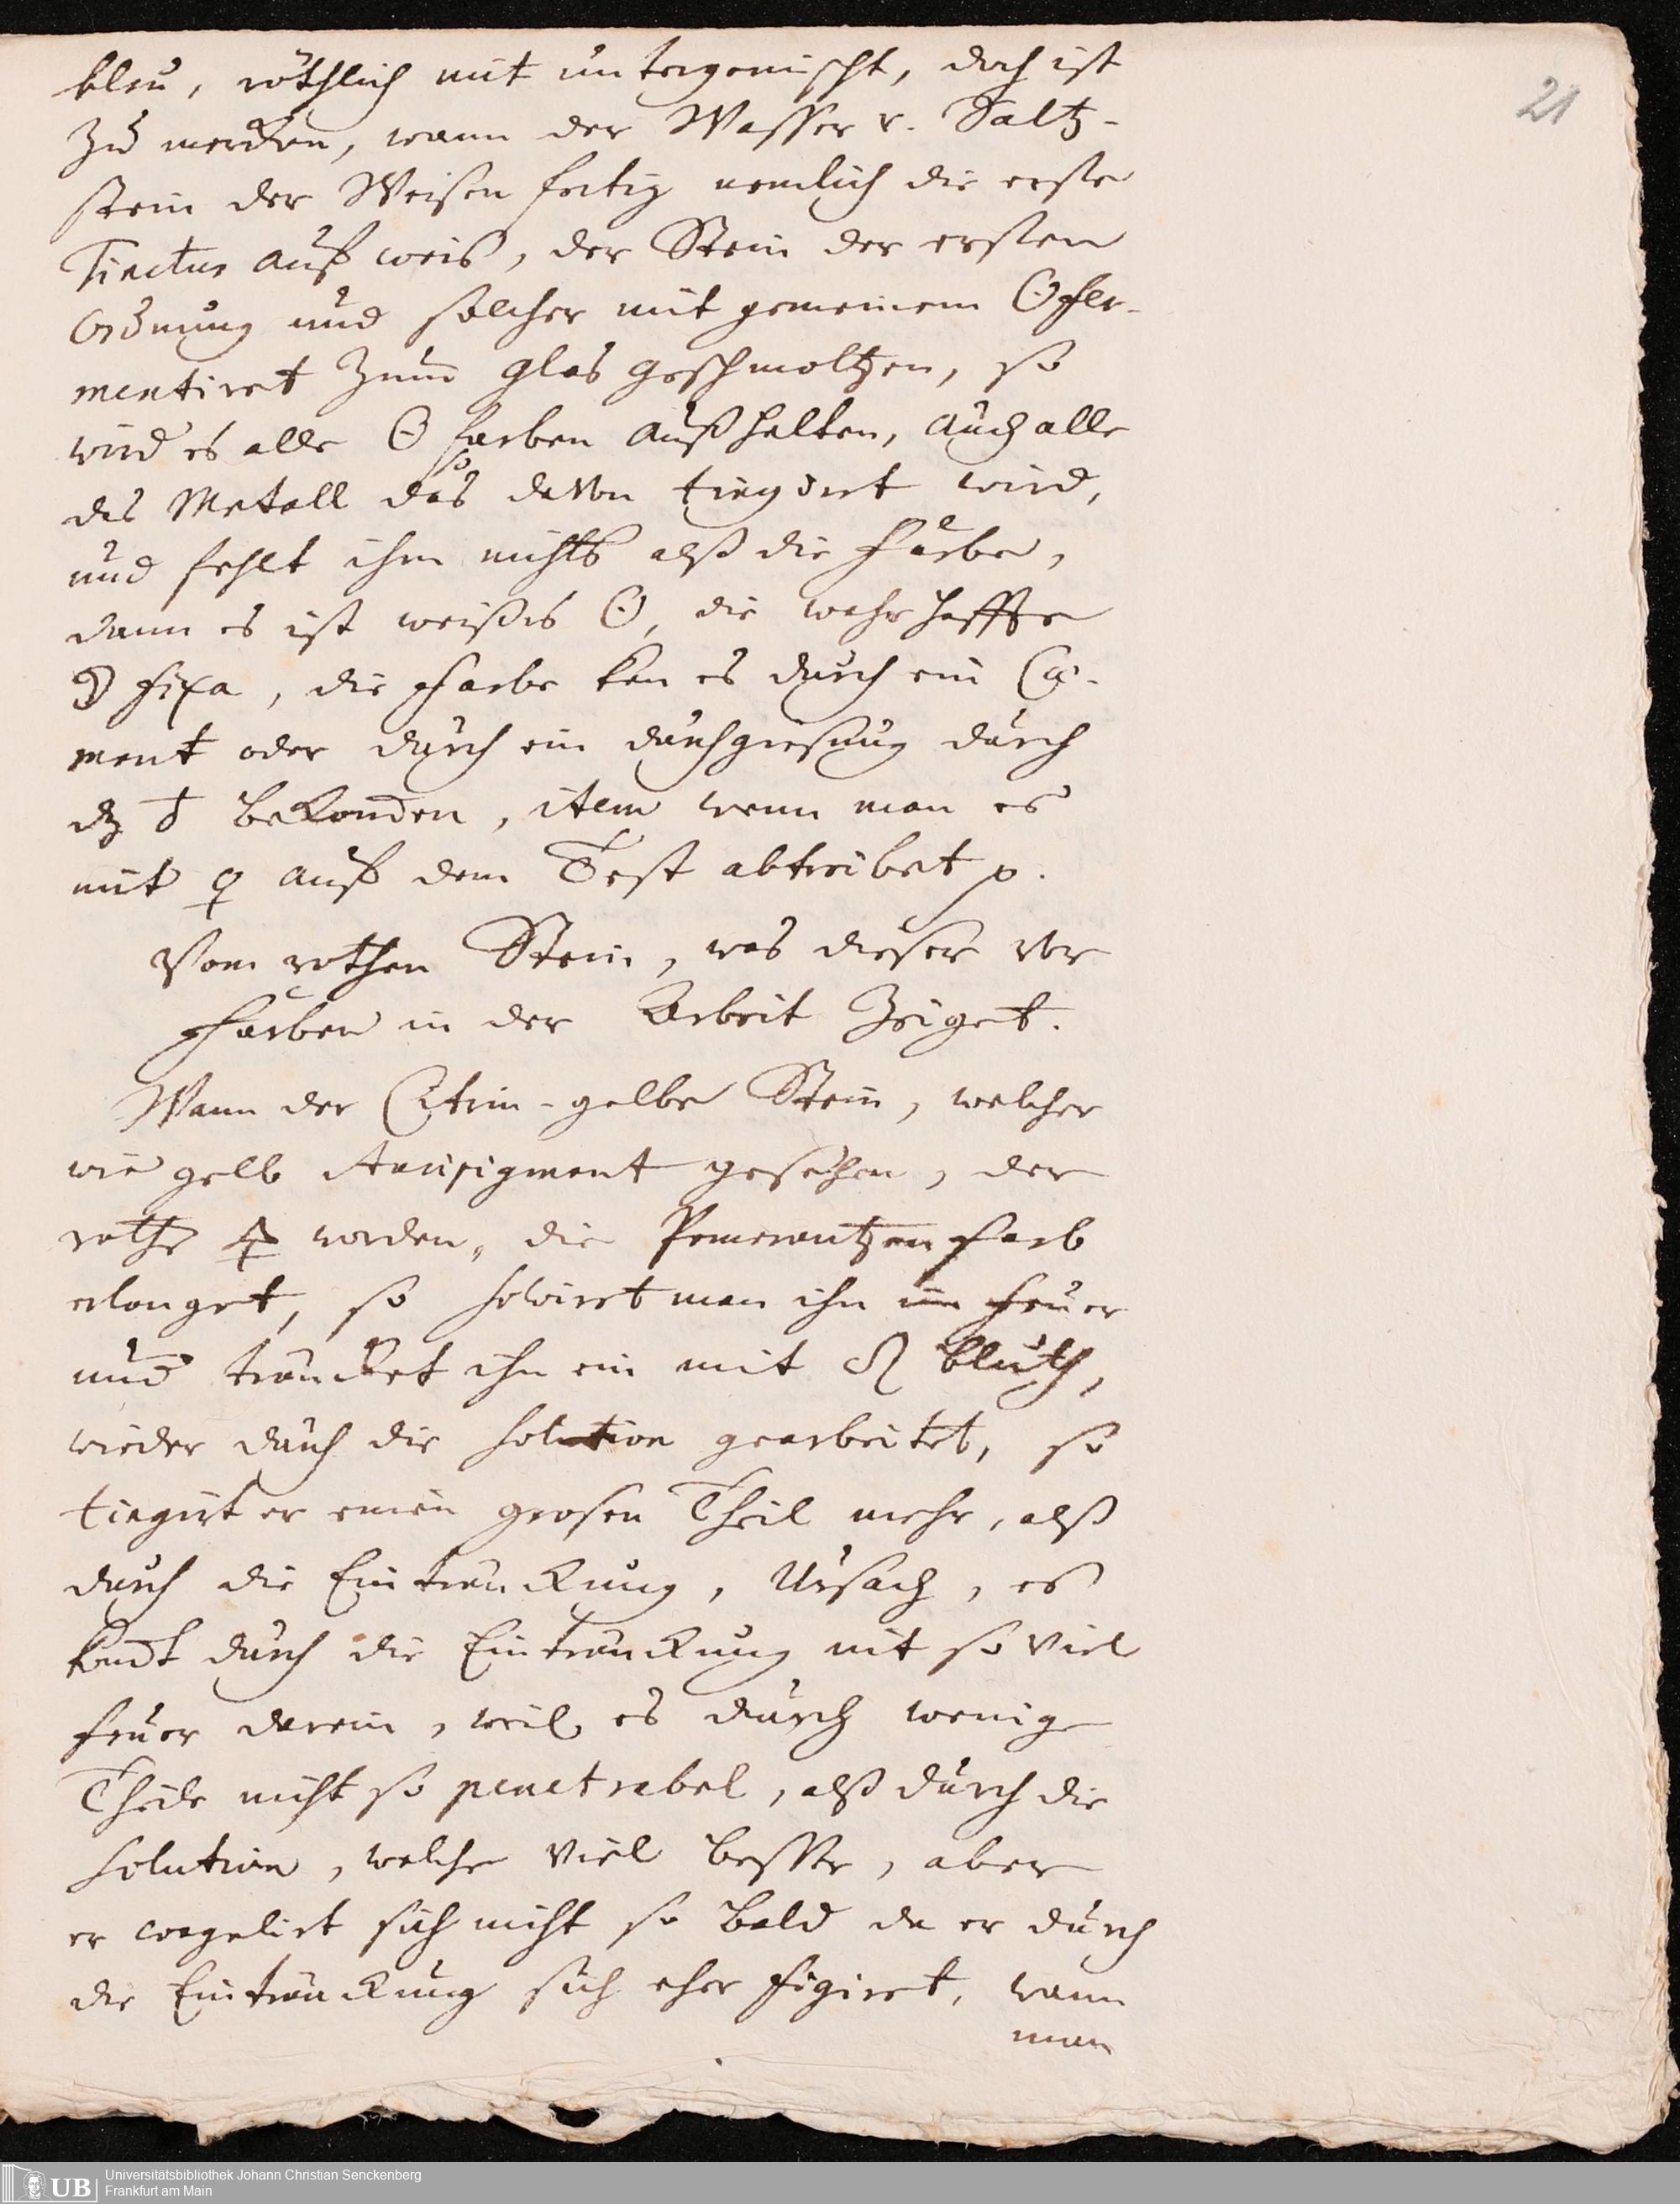 bleu, röthlich mit untergemischt, doch ist
21
zu mercken, wann der Wasser v. Saltz-
stein der Weisen fertig nemlich die erste
Tinctur auf weis, der Stein der ersten
Ordnung und solcher mit gemeinem ☉ fer-
mentiret zum Glas geschmoltzen, so
wird es alle ☉ farben außhalten, auch alle
so
des Metall das davon tingiret wird,
und fehlt ihm nichts alß die Farbe,
dann es ist weißes ☉, die wahrhaffte
☽ fixa, die Farbe kan es durch ein Ce-
ment oder durch ein durchgiesung durch
dz ♁ bekommen, item wenn man es
mit ♀ auf dem Test abtreibet p.
Vom rothen Stein, was dieser vor
Farben in der Arbeit zeiget.
Wann der Citrin-gelbe Stein, welcher
wie gelb Auripigment gesehen, der
rothe 🜍 worden, die Pomerantzen farb
erlanget, so solviret man ihn im feuer
und träncket ihn ein mit ♌ bluth,
wieder durch die solution gearbeitet, so
tingirt er einen grosen Theil mehr, alß
durch die Einträckung, Ursach, es
komt durch die Einträckung nit so viel
feuer darein, weil es durch wenig
Theile nicht so penetrabel, alß durch die
solution, welche viel besser, aber
er coagulirt sich nicht so bald da er durch
die Einträckung sich eher figiret, wann
man
UB
Universitätsbibliothek Johann Christian Senckenberg
Frankfurt am Main